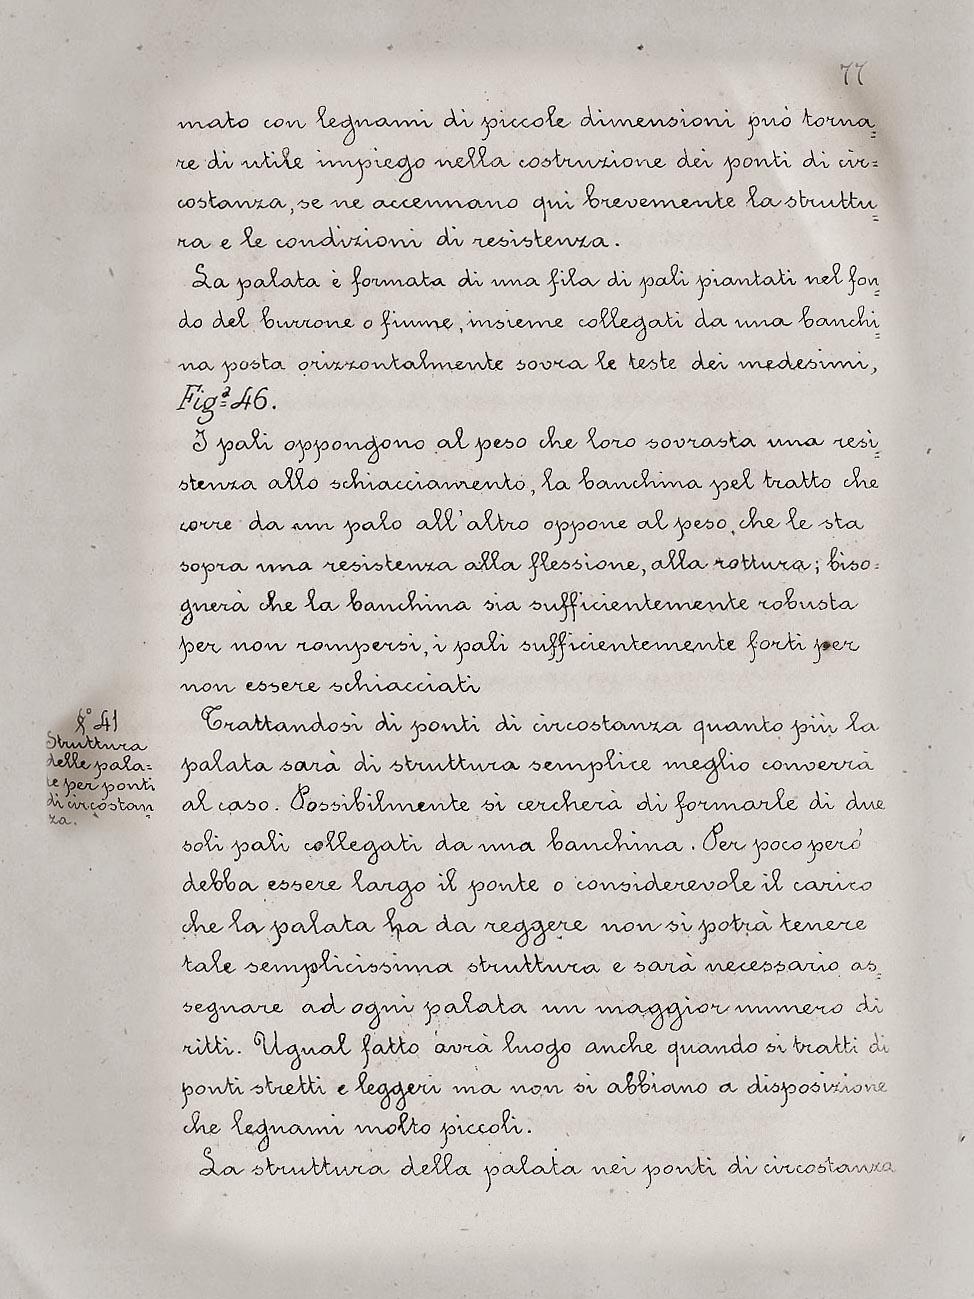 77
mato con legnami di piccole dimensioni può torna=
re di utile impiego nella costruzione dei ponti di cir=
costanza, se ne accennano qui brevemente la struttu=
ra e le condizioni di resistenza.
La palata è formata di una fila di pali piantati nel fon=
do del burrone o fiume, insieme collegati da una banchi=
na posta orizzontalmente sovra le teste dei medesimi,
Figª 46.
I pali oppongono al peso che loro sovrasta una resi=
stenza allo schiacciamento, la banchina pel tratto che
corre da un palo all'altro oppone al peso, che le sta
sopra una resistenza alla flessione, alla rottura; biso=
gnerà che la banchina sia sufficientemente robusta
per non rompersi, i pali sufficientemente forti per
non essere schiacciati
§° 41
Struttura
delle pala=
te per ponti
di circostan=
za.
Trattandosi di ponti di circostanza quanto più la
palata sarà di struttura semplice meglio converrà
al caso. Possibilmente si cercherà di formarle di due
soli pali collegati da una banchina. Per poco però
debba essere largo il ponte o considerevole il carico
che la palata ha da reggere non si potrà tenere
tale semplicissima struttura e sarà necessario as=
segnare ad ogni palata un maggior numero di
ritti. Ugual fatto avrà luogo anche quando si tratti di
ponti stretti e leggeri ma non si abbiano a disposizione
che legnami molto piccoli.
La struttura della palata nei ponti di circostanza